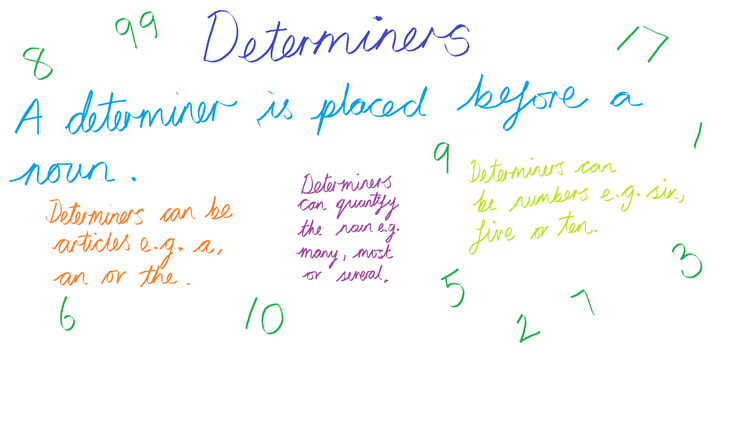 99
Determiners
17
8
A determiner is placed before a
noun.
1
9
Determiners can be
articles e.g. a,
an or the.
Determiners
can quantify
the noun e.g.
many, most
or several.
Determiners can
be numbers e.g. six,
five or ten.
3
5
6
10
2
7